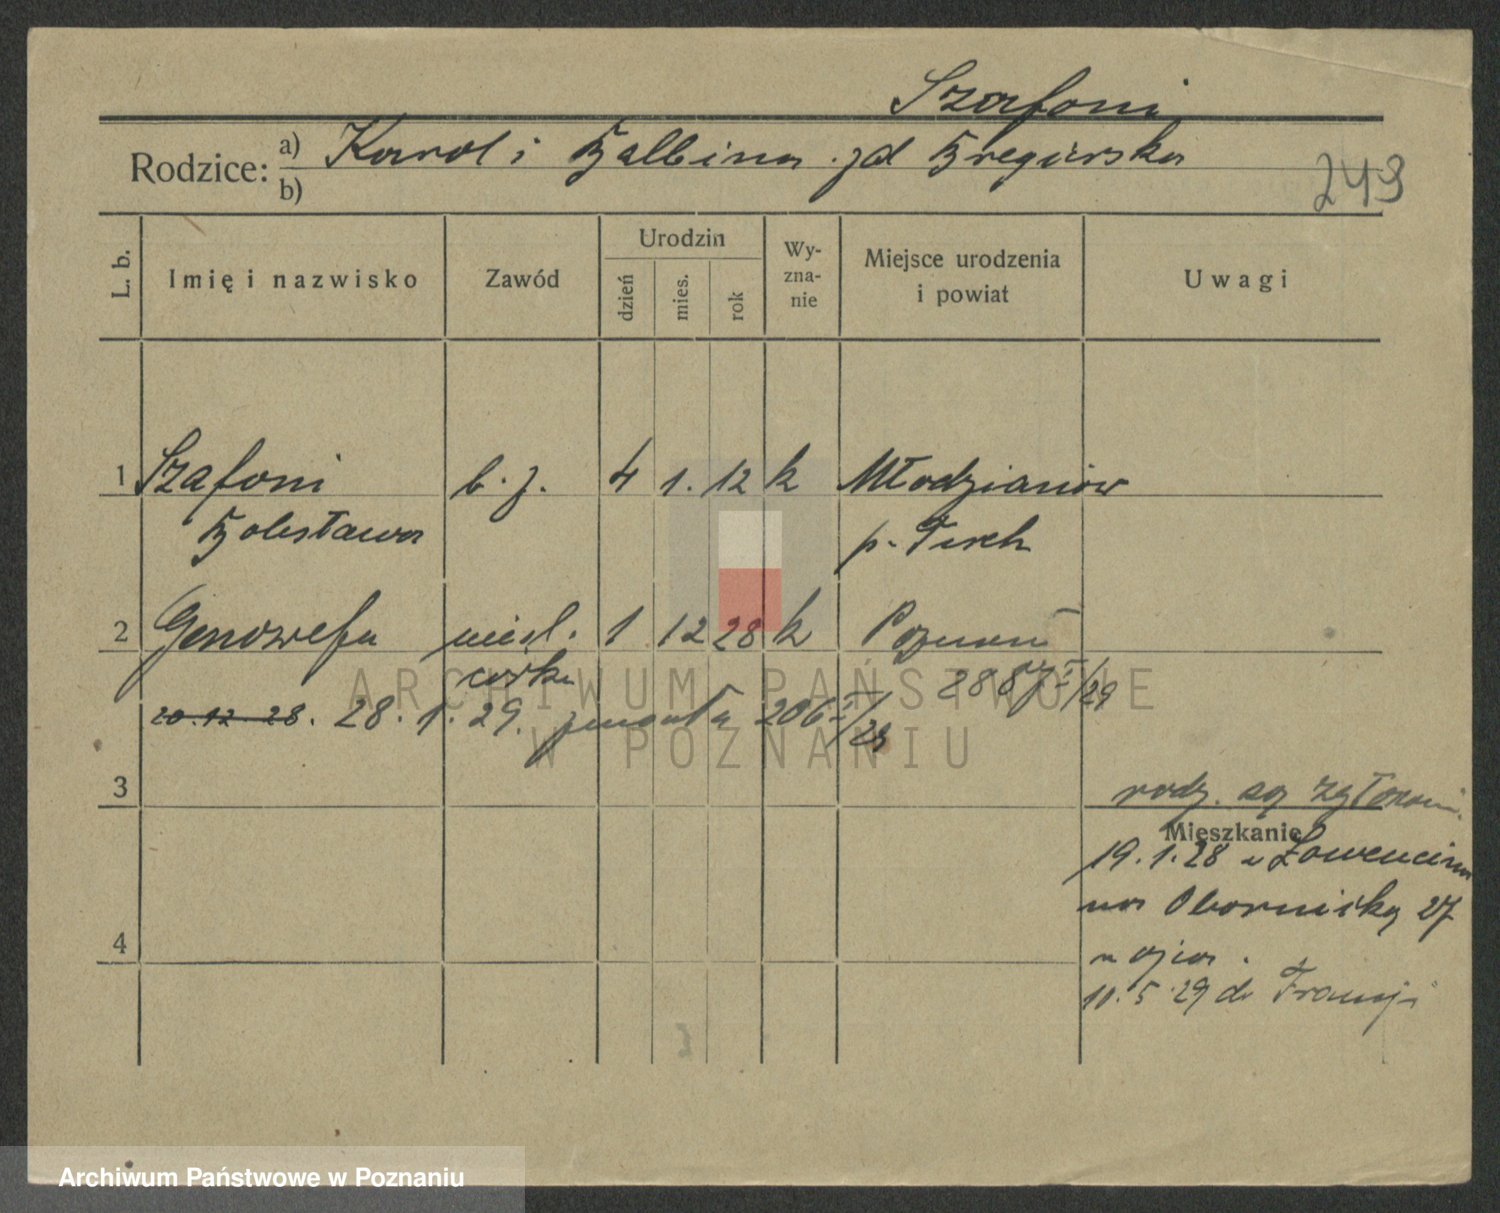 Szafoni
Rodzice: a) Karol i Balbina zd Bregurska
b)
249
L. b.
Imię i nazwisko
Zawód
Urodzin
dzień
mies.
rok
Wy-
zna-
nie
Miejsce urodzenia
i powiat
Uwagi
1 Szafoni b. z. 4 1. 12 k Młodzianów
Bolesława p. Turek
2 Genowefa nieśl. 1 12 28 k Poznań
córka 2887 I/29
20.12.28. 28.1.29. zmarła 206 I/29
3
rodz. są
Mieszkanie
19.1.28 w
na Obornicką 27
u ojca.
10.5.29 do Francji
4
ARCHIWUM PAŃSTWOWE
W POZNANIU
Archiwum Państwowe w Poznaniu